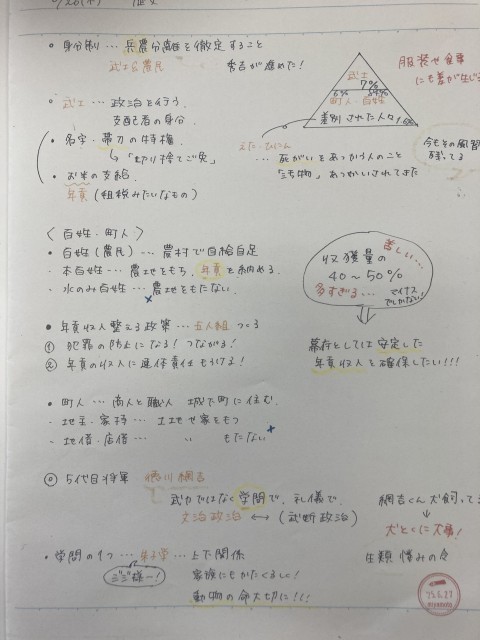 ・身分制り … 兵農分離を徹定すること
武士と農民 秀吉が進めた!
・武士 … 政治を行う、
支配者の身分
・名字・帯刀の特権
→「切り捨てご免」
・お米の支給
年貢 (租税みたいなもの)
武士
7%
町人・百姓
差別された人々
服装や食事
にも差が生じ
えた・ひにん
… 死がいをあつかう人のこと
「汚物」あつかいされてきた
今もその風習
残ってる
〈 百姓・町人 〉
・百姓 (農民) … 農村で自給自足
・本百姓 … 農地をもち、年貢を納める。
・水のみ百姓 … 農地をもたない。
収獲量の
40〜50%
苦しい…
多すぎる… マイナス
でしかない!
幕府としては安定した
年貢収入を確保したい!!!
・年貢収入整える政策 … 五人組 つくる
① 犯罪の防止になる! つながる!
② 年貢の収入に連体責任もうける!
・町人 … 商人と職人 城下町に住む。
・地主・家持 … 土地や家をもつ
・地借・店借 … 〃 もたない
◎ 5代目将軍 徳川綱吉
武力ではなく学問で、礼儀で。
文治政治 ←→ (武断政治)
綱吉くん犬飼ってる
→ 犬とくに大事!
生類憐みの令
・学問の1つ … 朱子学 … 上下関係
家族にもかたくるしく!
動物の命大切に!!!